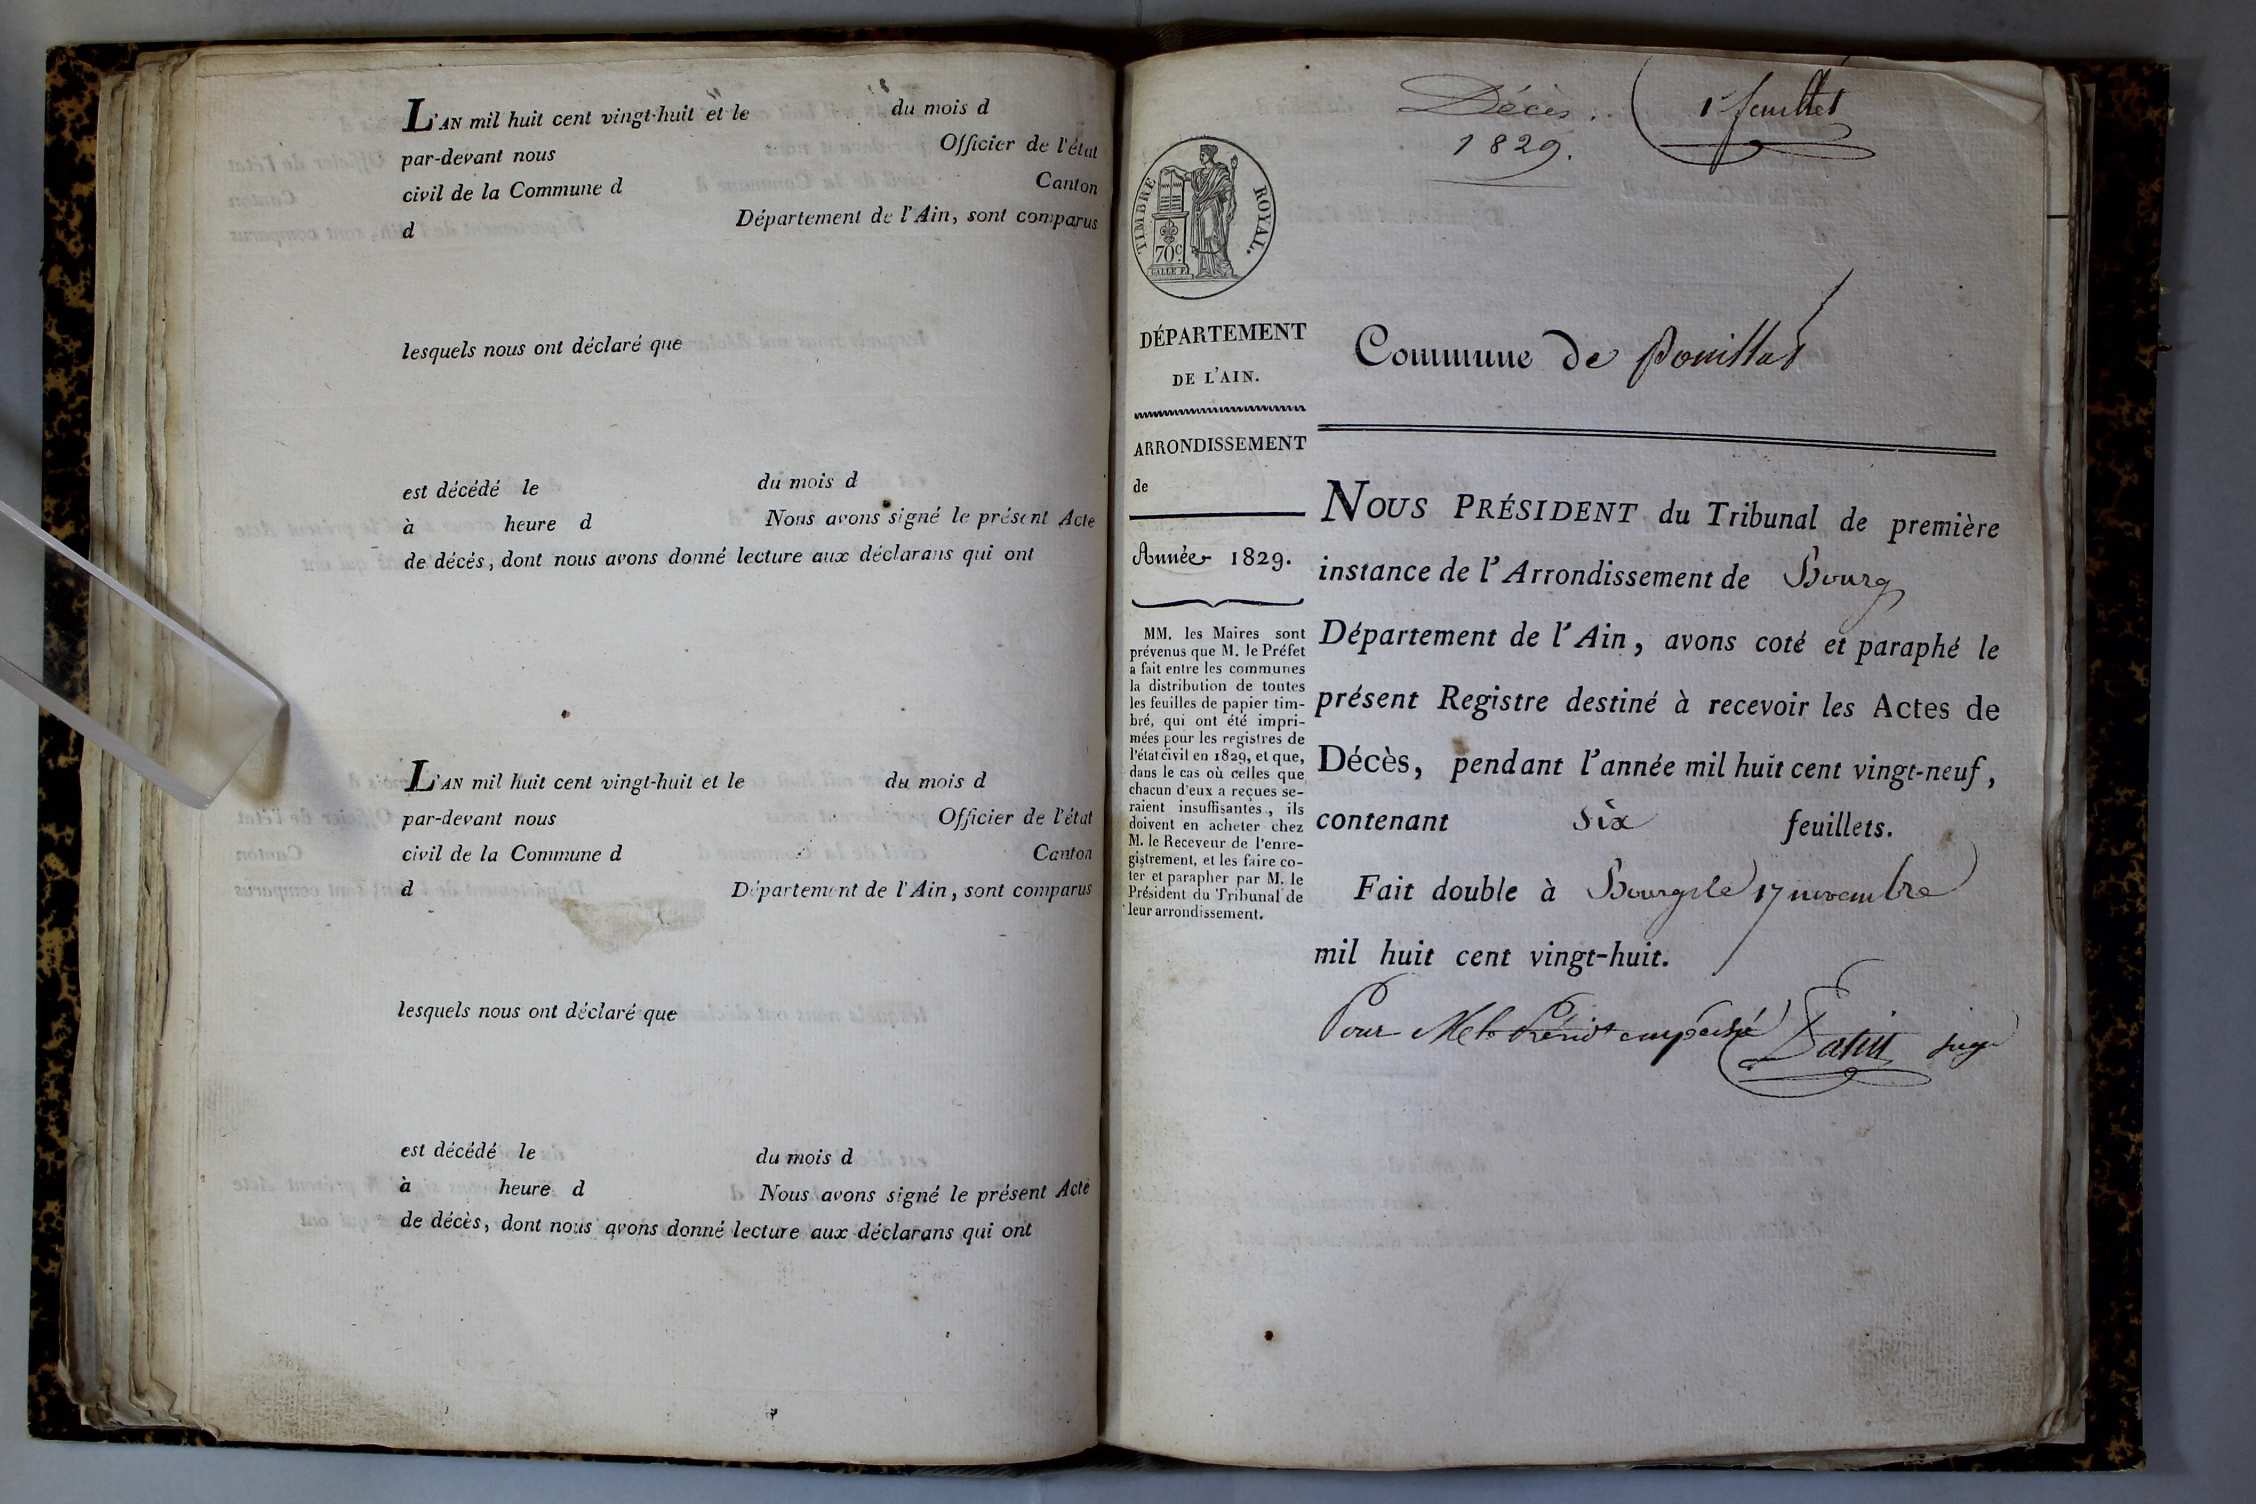 L'AN mil huit cent vingt-huit et le du mois d
par-devant nous Officier de l'état
civil de la Commune d Canton
d Département de l'Ain, sont comparus
lesquels nous ont déclaré que
est décédé le du mois d
à heure d Nous avons signé le présent Acte
de décès, dont nous avons donné lecture aux déclarans qui ont
L'AN mil huit cent vingt-huit et le du mois d
par-devant nous Officier de l'état
civil de la Commune d Canton
d Département de l'Ain, sont comparus
lesquels nous ont déclaré que
est décédé le du mois d
à heure d Nous avons signé le présent Acte
de décès, dont nous avons donné lecture aux déclarans qui ont
Décès.
1829.
1r feuillet
TIMBRE ROYAL.
70c.
DÉPARTEMENT
DE L'AIN.
ARRONDISSEMENT
de
Année 1829.
MM. les Maires sont
prévenus que M. le Préfet
a fait entre les communes
la distribution de toutes
les feuilles de papier tim-
bré, qui ont été impri-
mées pour les registres de
l'état civil en 1829, et que,
dans le cas où celles que
chacun d'eux a reçues se-
raient insuffisantes, ils
doivent en acheter chez
M. le Receveur de l'enre-
gistrement, et les faire co-
ter et parapher par M. le
Président du Tribunal de
leur arrondissement.
Commune de Pouillat
NOUS PRÉSIDENT du Tribunal de première
instance de l'Arrondissement de Bourg
Département de l'Ain, avons coté et paraphé le
présent Registre destiné à recevoir les Actes de
Décès, pendant l'année mil huit cent vingt-neuf,
contenant six feuillets.
Fait double à Bourg le 17 novembre
mil huit cent vingt-huit.
Pour Mr le Présidt empêché
juge